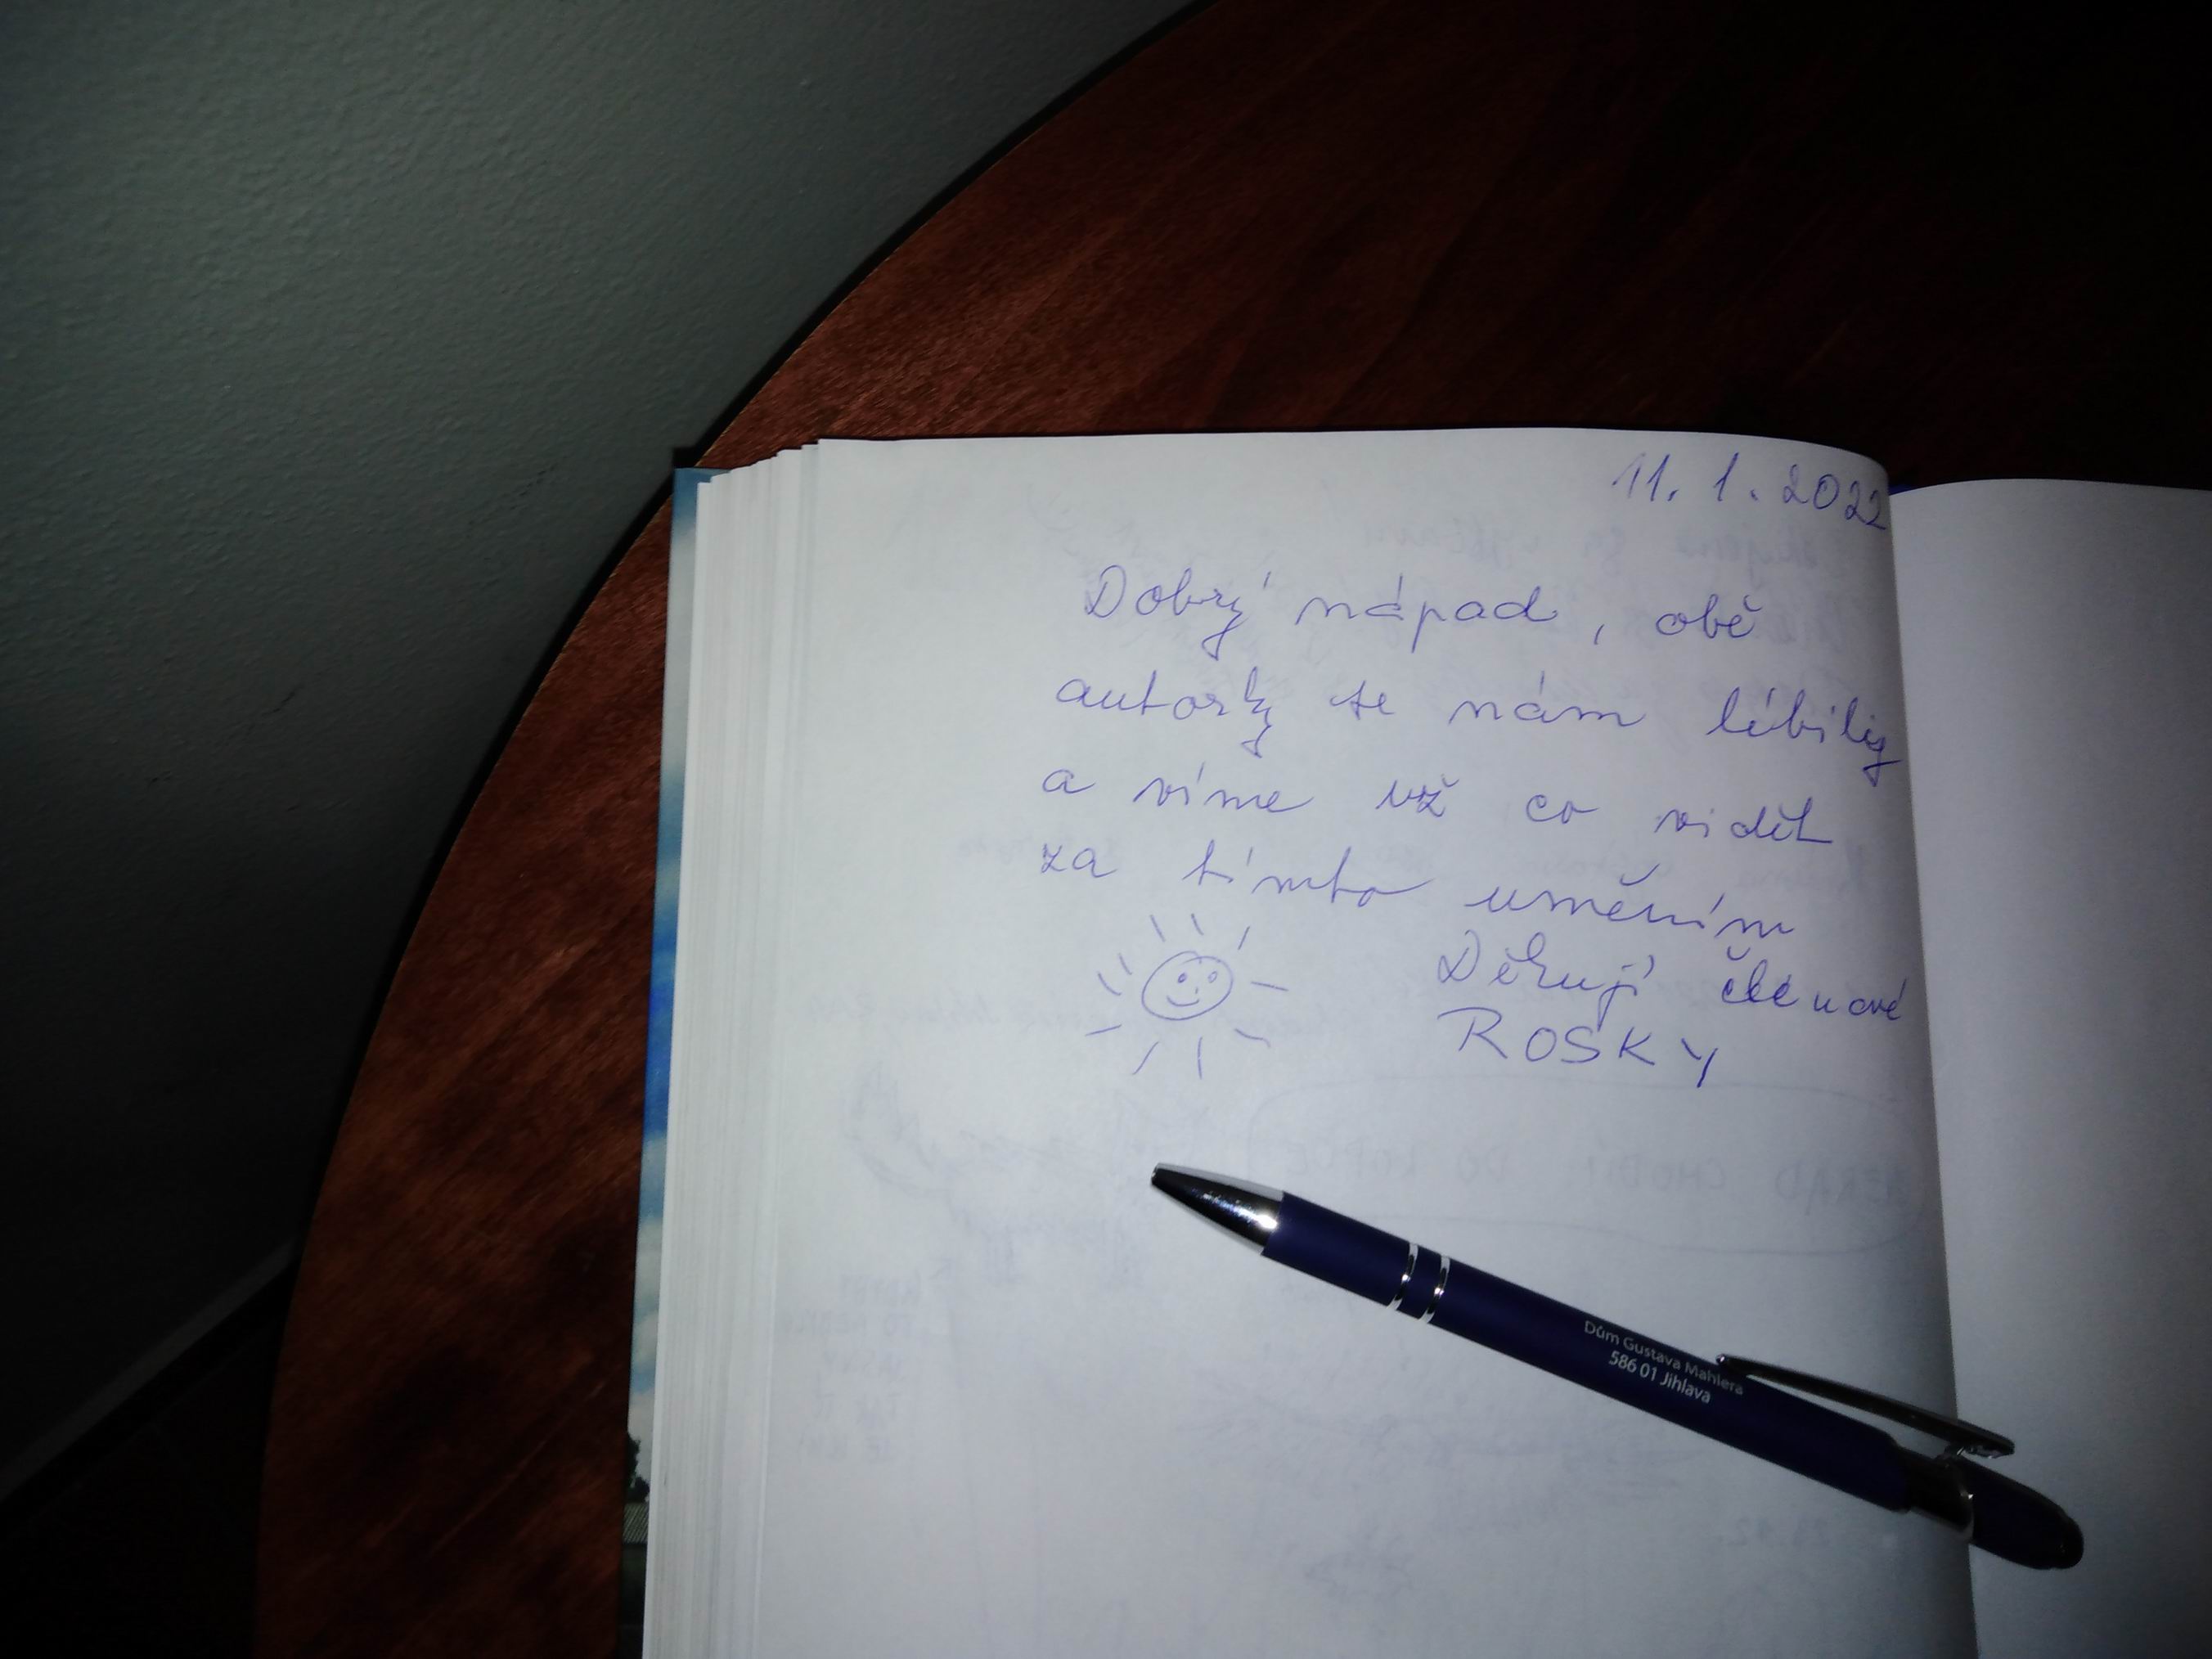 11. 1. 2022
Dobrý nápad, obě
autorky se nám líbily
a víme už co vidět
za tímto uměním
Děkují členové
ROSKY
Dům Gustava Mahlera
586 01 Jihlava